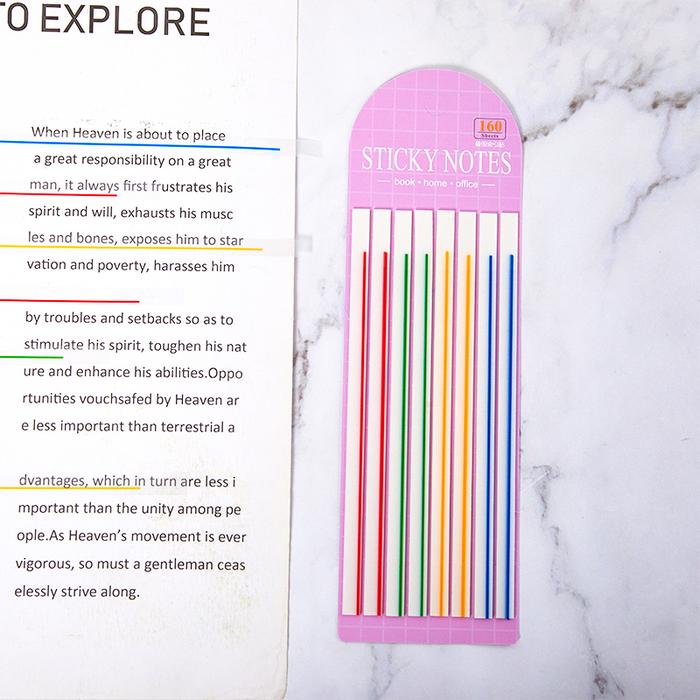 TO EXPLORE
When Heaven is about to place
a great responsibility on a great
man, it always first frustrates his
spirit and will, exhausts his musc
les and bones, exposes him to star
vation and poverty, harasses him
by troubles and setbacks so as to
stimulate his spirit, toughen his nat
ure and enhance his abilities.Oppo
rtunities vouchsafed by Heaven ar
e less important than terrestrial a
dvantages, which in turn are less i
mportant than the unity among pe
ople.As Heaven's movement is ever
vigorous, so must a gentleman ceas
elessly strive along.
160
Sheets
STICKY NOTES
book • home • office